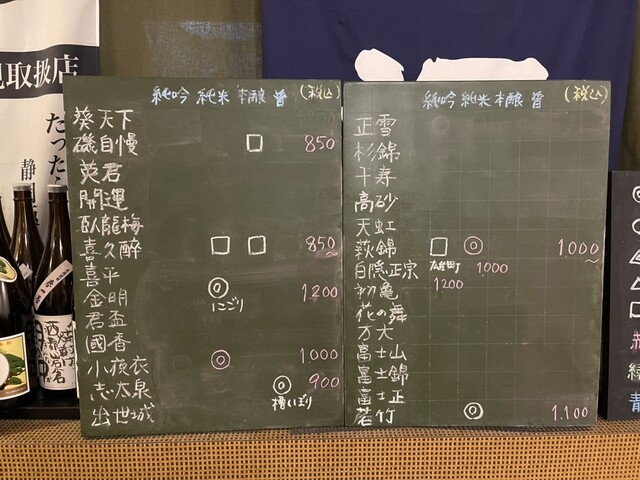 取扱店
だったら
静岡
純吟 純米 本醸 普 (税込)
葵天下
磯自慢 □ 850
英君
開運
臥龍梅
喜久醉 □ □ 850~
喜平
金明 ◎ 1200
にごり
君盃
國香
小夜衣 ◎ 1000
志太泉 ◎ 900
槽しぼり
出世城
純吟 純米 本醸 普 (税込)
正雪
杉錦
千寿
高砂
天虹
萩錦 □ ◎ 1000~
白隠正宗 1000
初亀 1200
花の舞
万大
富士山
富士錦
富士正
若竹 ◎ 1.100